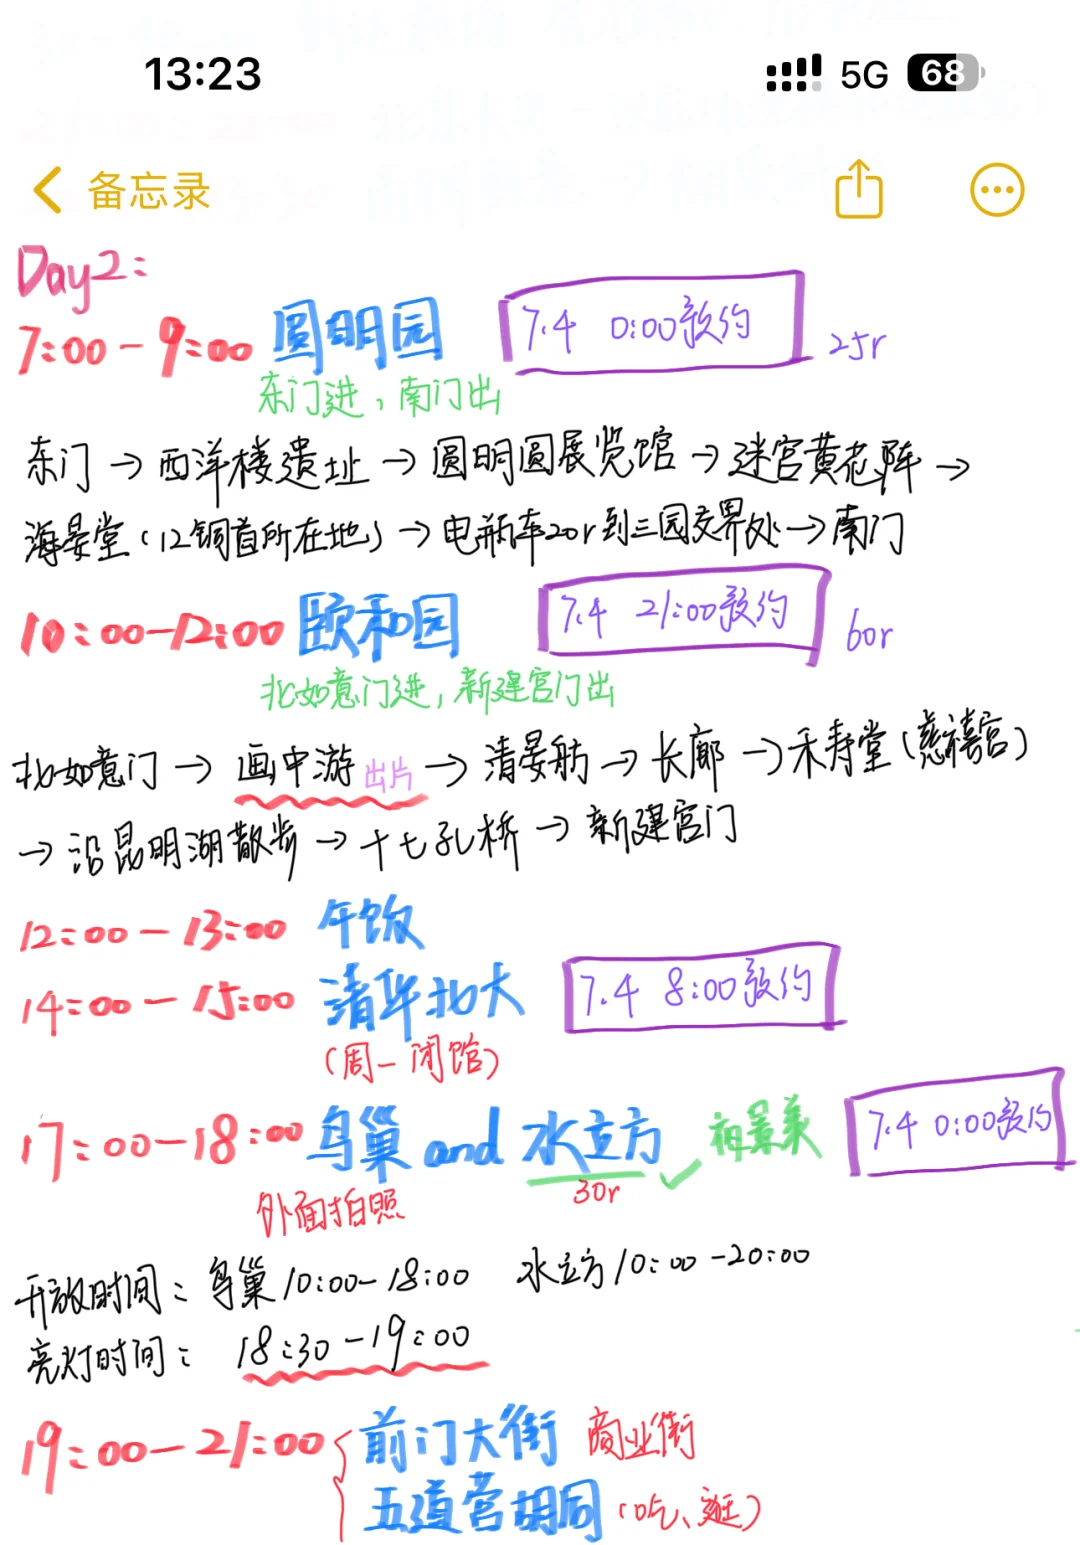 13:23 5G 68
备忘录
Day2:
7:00-9:00 圆明园 7.4 0:00预约 25r
东门进,南门出
东门→西洋楼遗址→圆明圆展览馆→迷宫黄花阵→
海晏堂(12铜首所在地)→电瓶车20r到三园交界处→南门
10:00-12:00 颐和园 7.4 21:00预约 60r
北如意门进,新建宫门出
北如意门→画中游 出片→清晏舫→长廊→乐寿堂(慈禧宫)
→沿昆明湖散步→十七孔桥→新建宫门
12:00-13:00 午饭
14:00-15:00 清华北大 7.4 8:00预约
(周一闭馆)
17:00-18:00 鸟巢and水立方 ✓ 夜景美 7.4 0:00预约
外面拍照 30r
开放时间:鸟巢10:00-18:00 水立方10:00-20:00
亮灯时间:18:30-19:00
19:00-21:00 前门大街 商业街
五道营胡同(吃、逛)